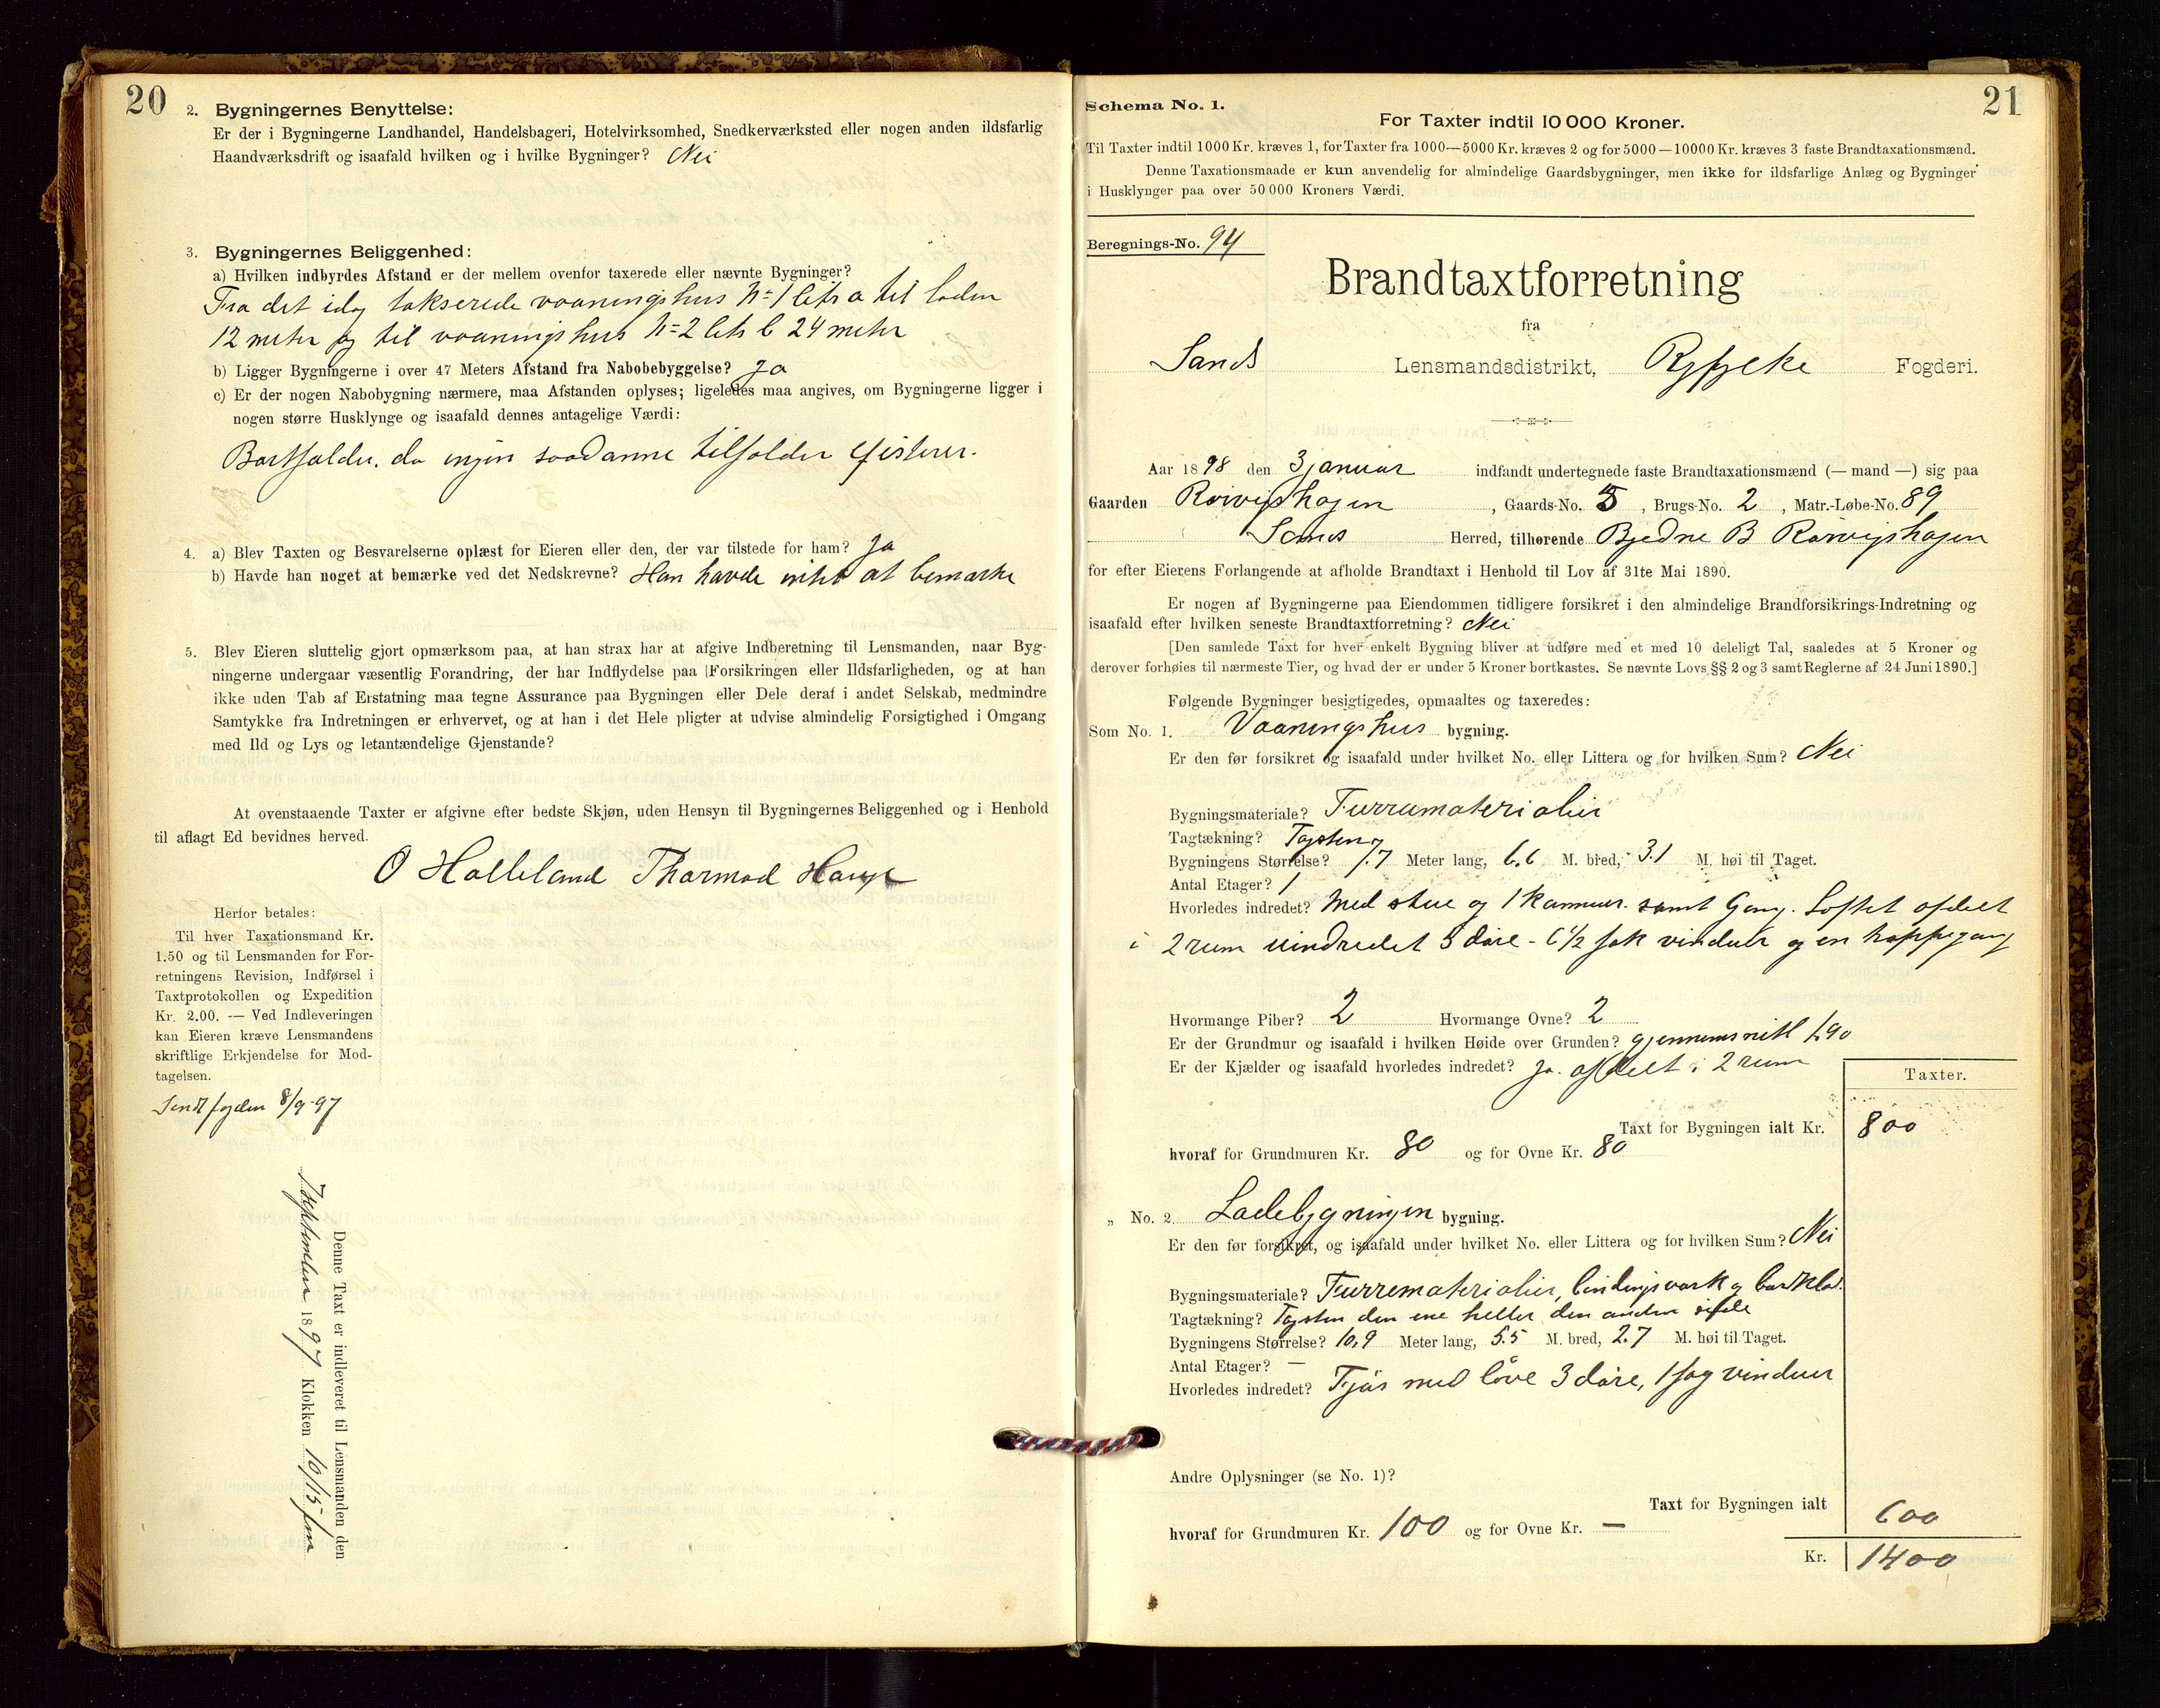 20
2. Bygningernes Benyttelse:
Er der i Bygningerne Landhandel, Handelsbageri, Hotelvirksomhed, Snedkerværksted eller nogen anden ildsfarlig
Haandværksdrift og isaafald hvilken og i hvilke Bygninger? Nei
3. Bygningernes Beliggenhed:
a) Hvilken indbyrdes Afstand er der mellem ovenfor taxerede eller nævnte Bygninger?
Fra det idag takserede vaaningshus No 1 litr a til laden
12 meter og til vaaningshus No 2 litr b 24 meter
b) Ligger Bygningerne i over 47 Meters Afstand fra Nabobebyggelse? Ja
c) Er der nogen Nabobygning nærmere, maa Afstanden oplyses; ligeledes maa angives, om Bygningerne ligger i
nogen større Husklynge og isaafald dennes antagelige Værdi:
Bortfalder, da ingen saadanne tilfælder existerer.
4. a) Blev Taxten og Besvarelserne oplæst for Eieren eller den, der var tilstede for ham? Ja
b) Havde han noget at bemærke ved det Nedskrevne? Han havde intet at bemærke
5. Blev Eieren sluttelig gjort opmærksom paa, at han strax har at afgive Indberetning til Lensmanden, naar Byg-
ningerne undergaar væsentlig Forandring, der har Indflydelse paa Forsikringen eller Ildsfarligheden, og at han
ikke uden Tab af Erstatning maa tegne Assurance paa Bygningen eller Dele deraf i andet Selskab, medmindre
Samtykke fra Indretningen er erhvervet, og at han i det Hele pligter at udvise almindelig Forsigtighed i Omgang
med Ild og Lys og letantændelige Gjenstande?
At ovenstaaende Taxter er afgivne efter bedste Skjøn, uden Hensyn til Bygningernes Beliggenhed og i Henhold
til aflagt Ed bevidnes herved.
O Halleland Thormod Hauge
Herfor betales:
Til hver Taxationsmand Kr.
1.50 og til Lensmanden for For-
retningens Revision, Indførsel i
Taxtprotokollen og Expedition
Kr. 2.00. — Ved Indleveringen
kan Eieren kræve Lensmandens
skriftlige Erkjendelse for Mod-
tagelsen.
Sendt fogden 8/9-97
Denne Taxt er indleveret til Lensmanden den
7 september 1897 Klokken 10/15 fm
21
Schema No. 1.
For Taxter indtil 10 000 Kroner.
Til Taxter indtil 1000 Kr. kræves 1, for Taxter fra 1000—5000 Kr. kræves 2 og for 5000—10000 Kr. kræves 3 faste Brandtaxationsmænd.
Denne Taxationsmaade er kun anvendelig for almindelige Gaardsbygninger, men ikke for ildsfarlige Anlæg og Bygninger
i Husklynger paa over 50 000 Kroners Værdi.
Beregnings-No. 94
Brandtaxtforretning
fra
Sands Lensmandsdistrikt, Ryfylke Fogderi.
Aar 1898 den 3 januar indfandt undertegnede faste Brandtaxationsmænd (— mand —) sig paa
Gaarden Rørvigshagen, Gaards-No. 5, Brugs-No. 2, Matr.-Løbe-No. 89
Sands Herred, tilhørende Bjedne B Rørvigshagen
for efter Eierens Forlangende at afholde Brandtaxt i Henhold til Lov af 31te Mai 1890.
Er nogen af Bygningerne paa Eiendommen tidligere forsikret i den almindelige Brandforsikrings-Indretning og
isaafald efter hvilken seneste Brandtaxtforretning? Nei
[Den samlede Taxt for hver enkelt Bygning bliver at udføre med et med 10 deleligt Tal, saaledes at 5 Kroner og
derover forhøies til nærmeste Tier, og hvad der er under 5 Kroner bortkastes. Se nævnte Lovs §§ 2 og 3 samt Reglerne af 24 Juni 1890.]
Følgende Bygninger besigtigedes, opmaaltes og taxeredes:
Som No. 1. Vaaningshus bygning.
Er den før forsikret og isaafald under hvilket No. eller Littera og for hvilken Sum? Nei
Bygningsmateriale? Furrumaterialier
Tagtækning? Tagsten
Bygningens Størrelse? 7.7 Meter lang, 6,6 M. bred, 3.1 M. høi til Taget.
Antal Etager? 1
Hvorledes indredet? Med stue og 1 kammer samt Gang. Loftet afdelt
i 2 rum uindredet 5 døre - 6 1/2 fak vinduer og en trappegang
Hvormange Piber? 2 Hvormange Ovne? 2
Er der Grundmur og isaafald i hvilken Høide over Grunden? gjennemsnitl 1.90
Er der Kjælder og isaafald hvorledes indredet? Ja. afdelt i 2 rum
Taxter.
Taxt for Bygningen ialt Kr. 800
hvoraf for Grundmuren Kr. 80 og for Ovne Kr. 80
„ No. 2. Ladebygningen bygning.
Er den før forsikret, og isaafald under hvilket No. eller Littera og for hvilken Sum? Nei
Bygningsmateriale? Furrematerialier, bindingsværk og bordklæd.
Tagtækning? Tagsten den ene heller den anden side
Bygningens Størrelse? 10,9 Meter lang, 5.5 M. bred, 2.7 M. høi til Taget.
Antal Etager? —
Hvorledes indredet? Fjøs med løve 3 døre, 1 fag vinduer
Andre Oplysninger (se No. 1)?
Taxt for Bygningen ialt 600
hvoraf for Grundmuren Kr. 100 og for Ovne Kr. —
Kr. 1400